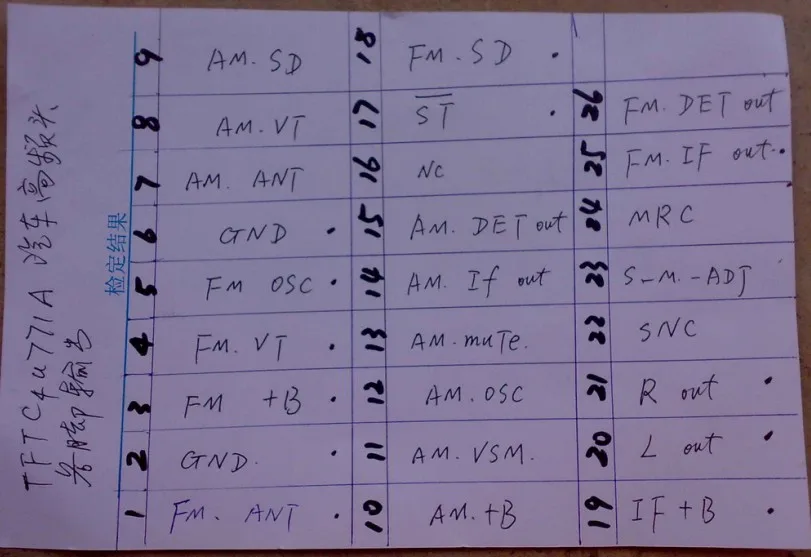 TFTC4U771A 汽车高频头
各脚输出
检定结果
9 AM.SD
8 AM.VT
7 AM. ANT
6 GND .
5 FM OSC .
4 FM.VT .
3 FM +B .
2 GND.
1 FM. ANT .
18 FM.SD .
17 S̅T̅ .
16 NC
15 AM. DET out
14 AM. If out
13 AM.muTe.
12 AM.OSC
11 AM.VSM.
10 AM.+B
26 FM.DET out
25 FM.IF out..
24 MRC
23 S-M.-ADJ
22 SNC
21 R out .
20 L out .
19 IF+B .